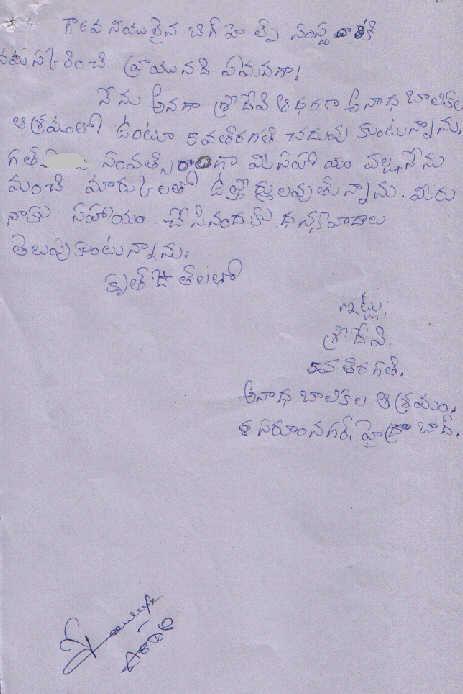 గౌరవనీయులైన బిగ్ హెల్ప్ సంస్థ వారికి
నమస్కరించి వ్రాయునది ఏమనగా!
నేను అనగా శ్రీదేవి అనాధ బాలికల
ఆశ్రమంలో ఉంటూ 10వతరగతి చదువు కుంటున్నాను.
గత సంవత్సరంగా మీ సహాయం వల్ల నేను
మంచి మార్కులతో ఉత్తీర్ణులవుతున్నాను. మీరు
నాకు సహాయం చేసినందుకు ధన్యవాదాలు
తెలుపుకుంటున్నాను.
కృతజ్ఞతలతో
ఇట్లు,
శ్రీదేవి.
10వ తరగతి.
అనాధ బాలికల ఆశ్రమం.
సరూంనగర్, హైద్రాబాద్.